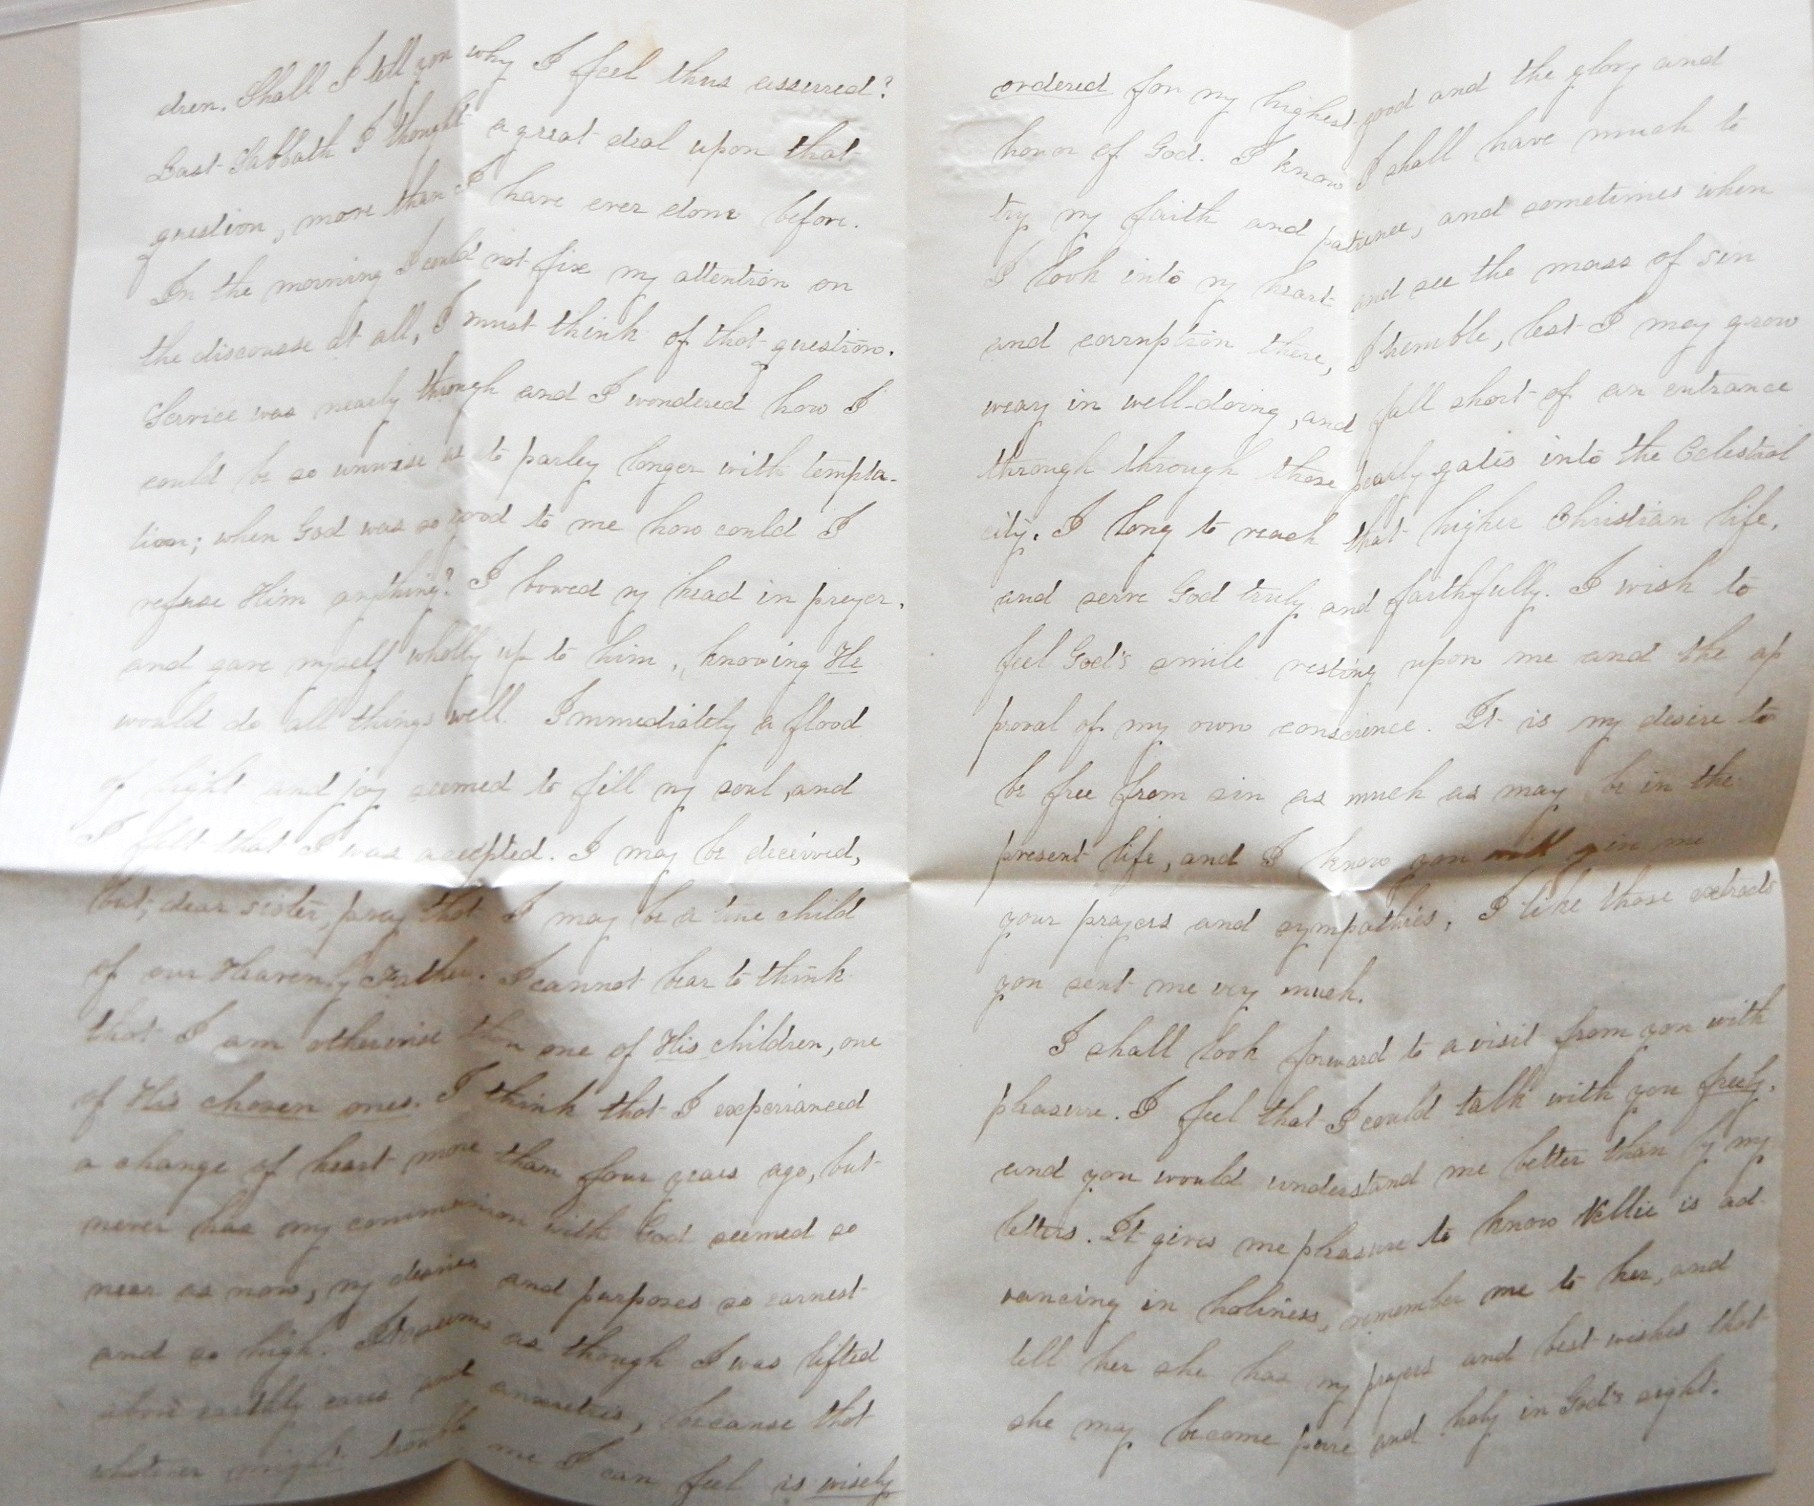 dren. Shall I tell you why I feel thus assured?
Last Sabbath I thought a great deal upon that
question, more than I have ever done before.
In the morning I could not fix my attention on
the discourse at all, I must think of that question.
Service was nearly through and I wondered how I
could be so unwise as to parley longer with tempta-
tion; when God was so good to me how could I
refuse Him anything? I bowed my head in prayer,
and gave myself wholly up to him, knowing He
would do all things well. Immediately a flood
of light and joy seemed to fill my soul, and
I felt that I was accepted. I may be deceived,
but, dear sister, pray that I may be a true child
of our Heavenly Father. I cannot bear to think
that I am otherwise than one of His children, one
of His chosen ones. I think that I experianced
a change of heart more than four years ago, but
never has my communion with God seemed so
near as now, my desires and purposes so earnest
and so high. It seems as though I was lifted
above earthly cares and anxieties, because that
whatever might trouble me I can feel is wisely
ordered for my highest good and the glory and
honor of God. I know I shall have much to
try my faith and patience, and sometimes when
I look into my heart and see the mass of sin
and corruption there, I tremble, lest I may grow
weary in well-doing, and fall short of an entrance
through through those pearly gates into the Celestial
city. I long to reach that higher Christian life,
and serve God truly and faithfully. I wish to
feel God's smile resting upon me and the ap
proval of my own conscience. It is my desire to
be free from sin as much as may be in the
present life, and I know you will give me
your prayers and sympathies. I like those extracts
you sent me very much.
I shall look forward to a visit from you with
pleasure. I feel that I could talk with you freely,
and you would understand me better than by my
letters. It gives me pleasure to know Nellie is ad-
vancing in holiness, remember me to her, and
tell her she has my prayers and best wishes that
she may become pure and holy in God's sight.